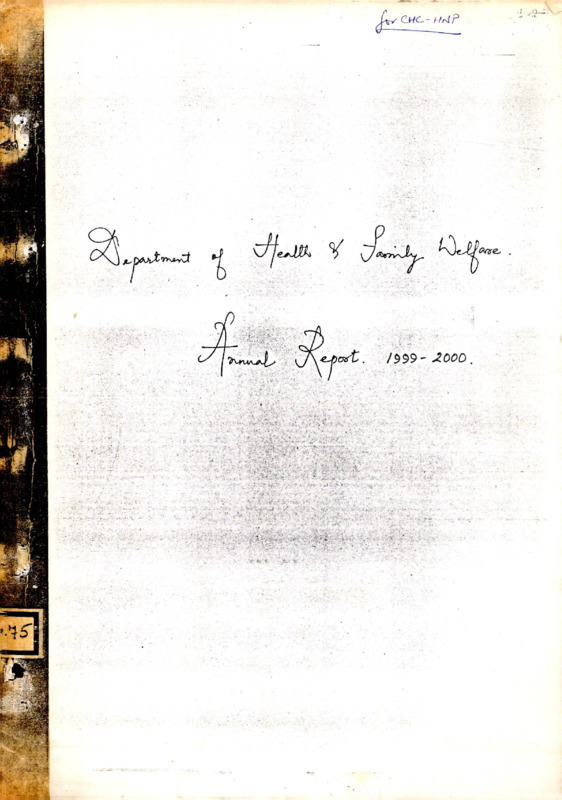 for CHC-HNP
Department of Health & Family Welfare.
Annual Report. 1999-2000.
.75